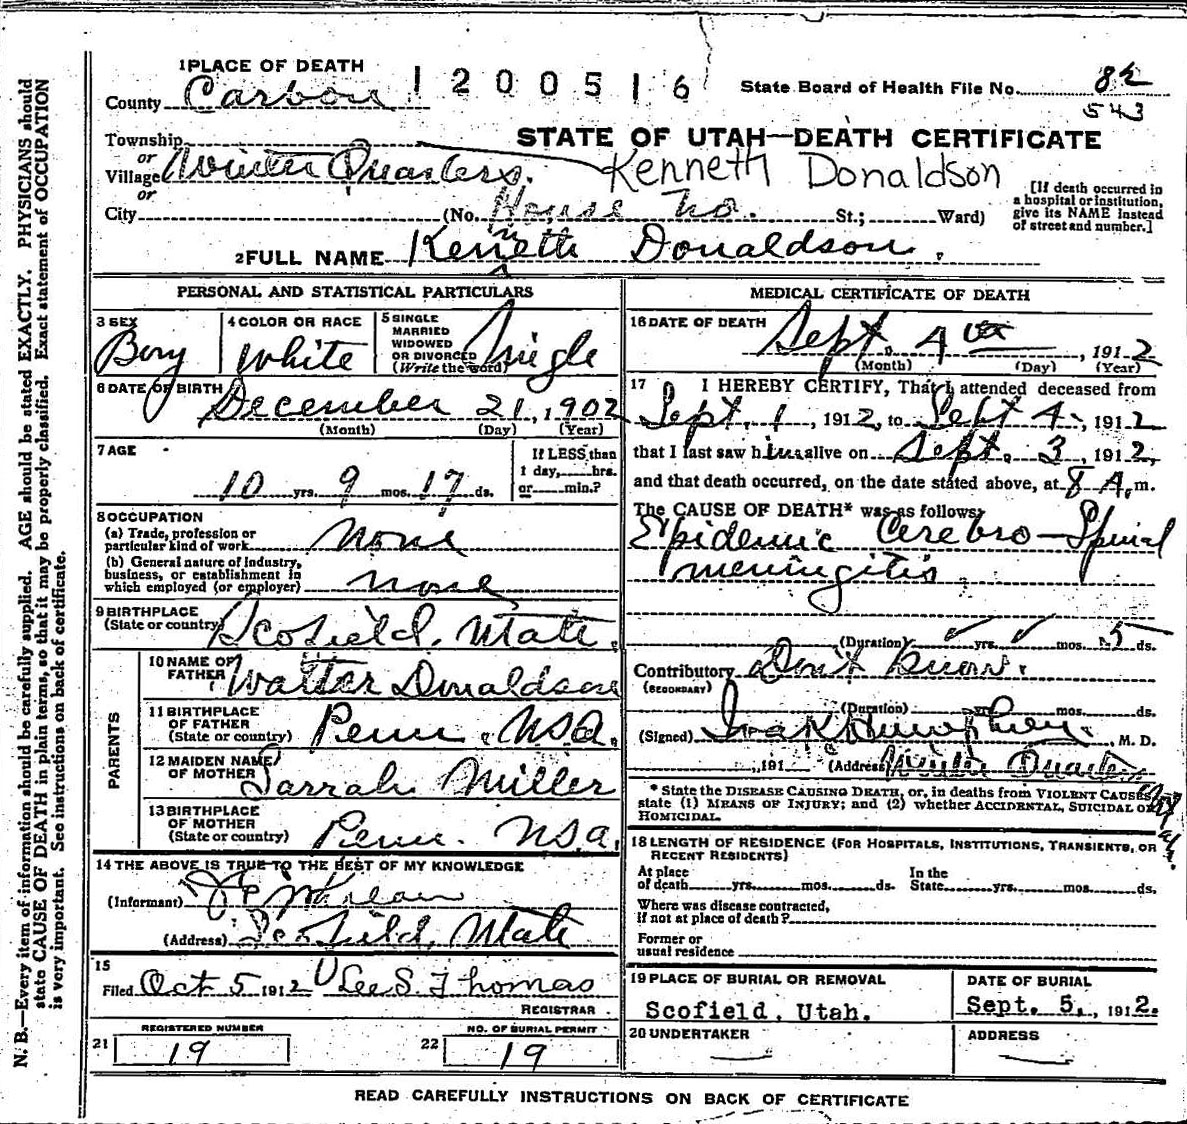 1 PLACE OF DEATH
1200516
State Board of Health File No. 82
543
County Carbon
Township
STATE OF UTAH—DEATH CERTIFICATE
or
Village Winter Quarters.
Kenneth Donaldson
or
City (No. House No. St.; Ward)
[If death occurred in
a hospital or institution,
give its NAME instead
of street and number.]
2 FULL NAME Kenneth Donaldson.
PERSONAL AND STATISTICAL PARTICULARS
3 SEX
Boy
4 COLOR OR RACE
White
5 SINGLE
MARRIED
WIDOWED
OR DIVORCED
(Write the word)
Single
6 DATE OF BIRTH
December 21, 1902
(Month) (Day) (Year)
7 AGE
10 yrs. 9 mos. 17 ds.
If LESS than
1 day, hrs.
or min.?
8 OCCUPATION
(a) Trade, profession or
particular kind of work None
(b) General nature of industry,
business, or establishment in
which employed (or employer) none
9 BIRTHPLACE
(State or country) Scofield, Utah.
PARENTS
10 NAME OF
FATHER Walter Donaldson
11 BIRTHPLACE
OF FATHER
(State or country) Penn. USA.
12 MAIDEN NAME
OF MOTHER Sarrah Miller
13 BIRTHPLACE
OF MOTHER
(State or country) Penn. USA.
14 THE ABOVE IS TRUE TO THE BEST OF MY KNOWLEDGE
(Informant)
(Address) Scofield, Utah
15
Filed Oct 5 1912 Lee S. Thomas
REGISTRAR
REGISTERED NUMBER
21 19
NO. OF BURIAL PERMIT
22 19
MEDICAL CERTIFICATE OF DEATH
16 DATE OF DEATH
Sept. 4th, 1912
(Month) (Day) (Year)
17 I HEREBY CERTIFY, That I attended deceased from
Sept. 1, 1912, to Sept 4, 1912
that I last saw him alive on Sept. 3, 1912,
and that death occurred, on the date stated above, at 8 A.m.
The CAUSE OF DEATH* was as follows:
Epidemic Cerebro-Spinal
meningitis
(Duration) yrs. mos. 5 ds.
Contributory Don't Know.
(SECONDARY)
(Duration) yrs. mos. ds.
(Signed) Ira K Humphrey, M. D.
, 191 (Address) Winter Quarters
Utah
* State the DISEASE CAUSING DEATH, or, in deaths from VIOLENT CAUSES,
state (1) MEANS OF INJURY; and (2) whether ACCIDENTAL, SUICIDAL OR
HOMICIDAL.
18 LENGTH OF RESIDENCE (FOR HOSPITALS, INSTITUTIONS, TRANSIENTS, OR
RECENT RESIDENTS)
At place
of death yrs. mos. ds.
In the
State yrs. mos. ds.
Where was disease contracted,
if not at place of death?
Former or
usual residence
19 PLACE OF BURIAL OR REMOVAL
Scofield, Utah.
DATE OF BURIAL
Sept. 5, 1912.
20 UNDERTAKER
ADDRESS
READ CAREFULLY INSTRUCTIONS ON BACK OF CERTIFICATE
N. B.—Every item of information should be carefully supplied. AGE should be stated EXACTLY. PHYSICIANS should
state CAUSE OF DEATH in plain terms, so that it may be properly classified. Exact statement of OCCUPATION
is very important. See instructions on back of certificate.